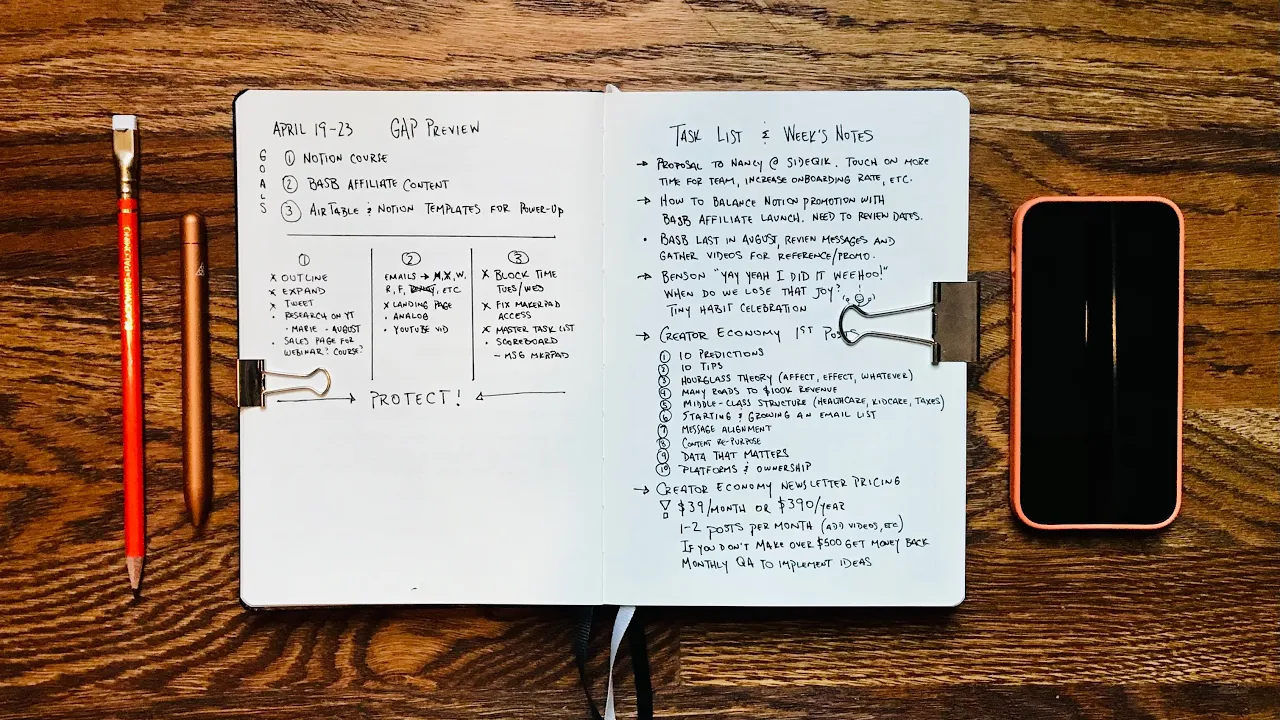 APRIL 19-23 GAP PREVIEW
GOALS
① NOTION COURSE
② BASB AFFILIATE CONTENT
③ AIRTABLE & NOTION TEMPLATES FOR POWER-UP
①
X OUTLINE
X EXPAND
X TWEET
• RESEARCH ON YT
• MARIE • AUGUST
• SALES PAGE FOR
WEBINAR? COURSE?
②
EMAILS → M, X, W,
R, F, ETC
X LANDING PAGE
• ANALOG
• YOUTUBE VID
③
X BLOCK TIME
TUES/WED
X FIX MAKERPAD
ACCESS
X MASTER TASK LIST
• SCOREBOARD
- MSG MKRPAD
→ PROTECT! ←
TASK LIST & WEEK'S NOTES
→ PROPOSAL TO NANCY @ . TOUCH ON MORE
TIME FOR TEAM, INCREASE ONBOARDING RATE, ETC.
→ HOW TO BALANCE NOTION PROMOTION WITH
BASB AFFILIATE LAUNCH. NEED TO REVIEW DATES.
• BASB LAST IN AUGUST, REVIEW MESSAGES AND
GATHER VIDEOS FOR REFERENCE/PROMO.
→ BENSON "YAY YEAH I DID IT WEEHOO!"
WHEN DO WE LOSE THAT JOY?
TINY HABIT CELEBRATION
→ CREATOR ECONOMY 1ST POS
① 10 PREDICTIONS
② 10 TIPS
③ HOURGLASS THEORY (AFFECT, EFFECT, WHATEVER)
④ MANY ROADS TO $100K REVENUE
⑤ MIDDLE-CLASS STRUCTURE (HEALTHCARE, KIDCARE, TAXES)
⑥ STARTING & GROWING AN EMAIL LIST
⑦ MESSAGE ALIGNMENT
⑧ CONTENT RE-PURPOSE
⑨ DATA THAT MATTERS
⑩ PLATFORMS & OWNERSHIP
→ CREATOR ECONOMY NEWSLETTER PRICING
$39/MONTH OR $390/YEAR
1-2 POSTS PER MONTH (ADD VIDEOS, ETC)
IF YOU DON'T MAKE OVER $500 GET MONEY BACK
MONTHLY QA TO IMPLEMENT IDEAS